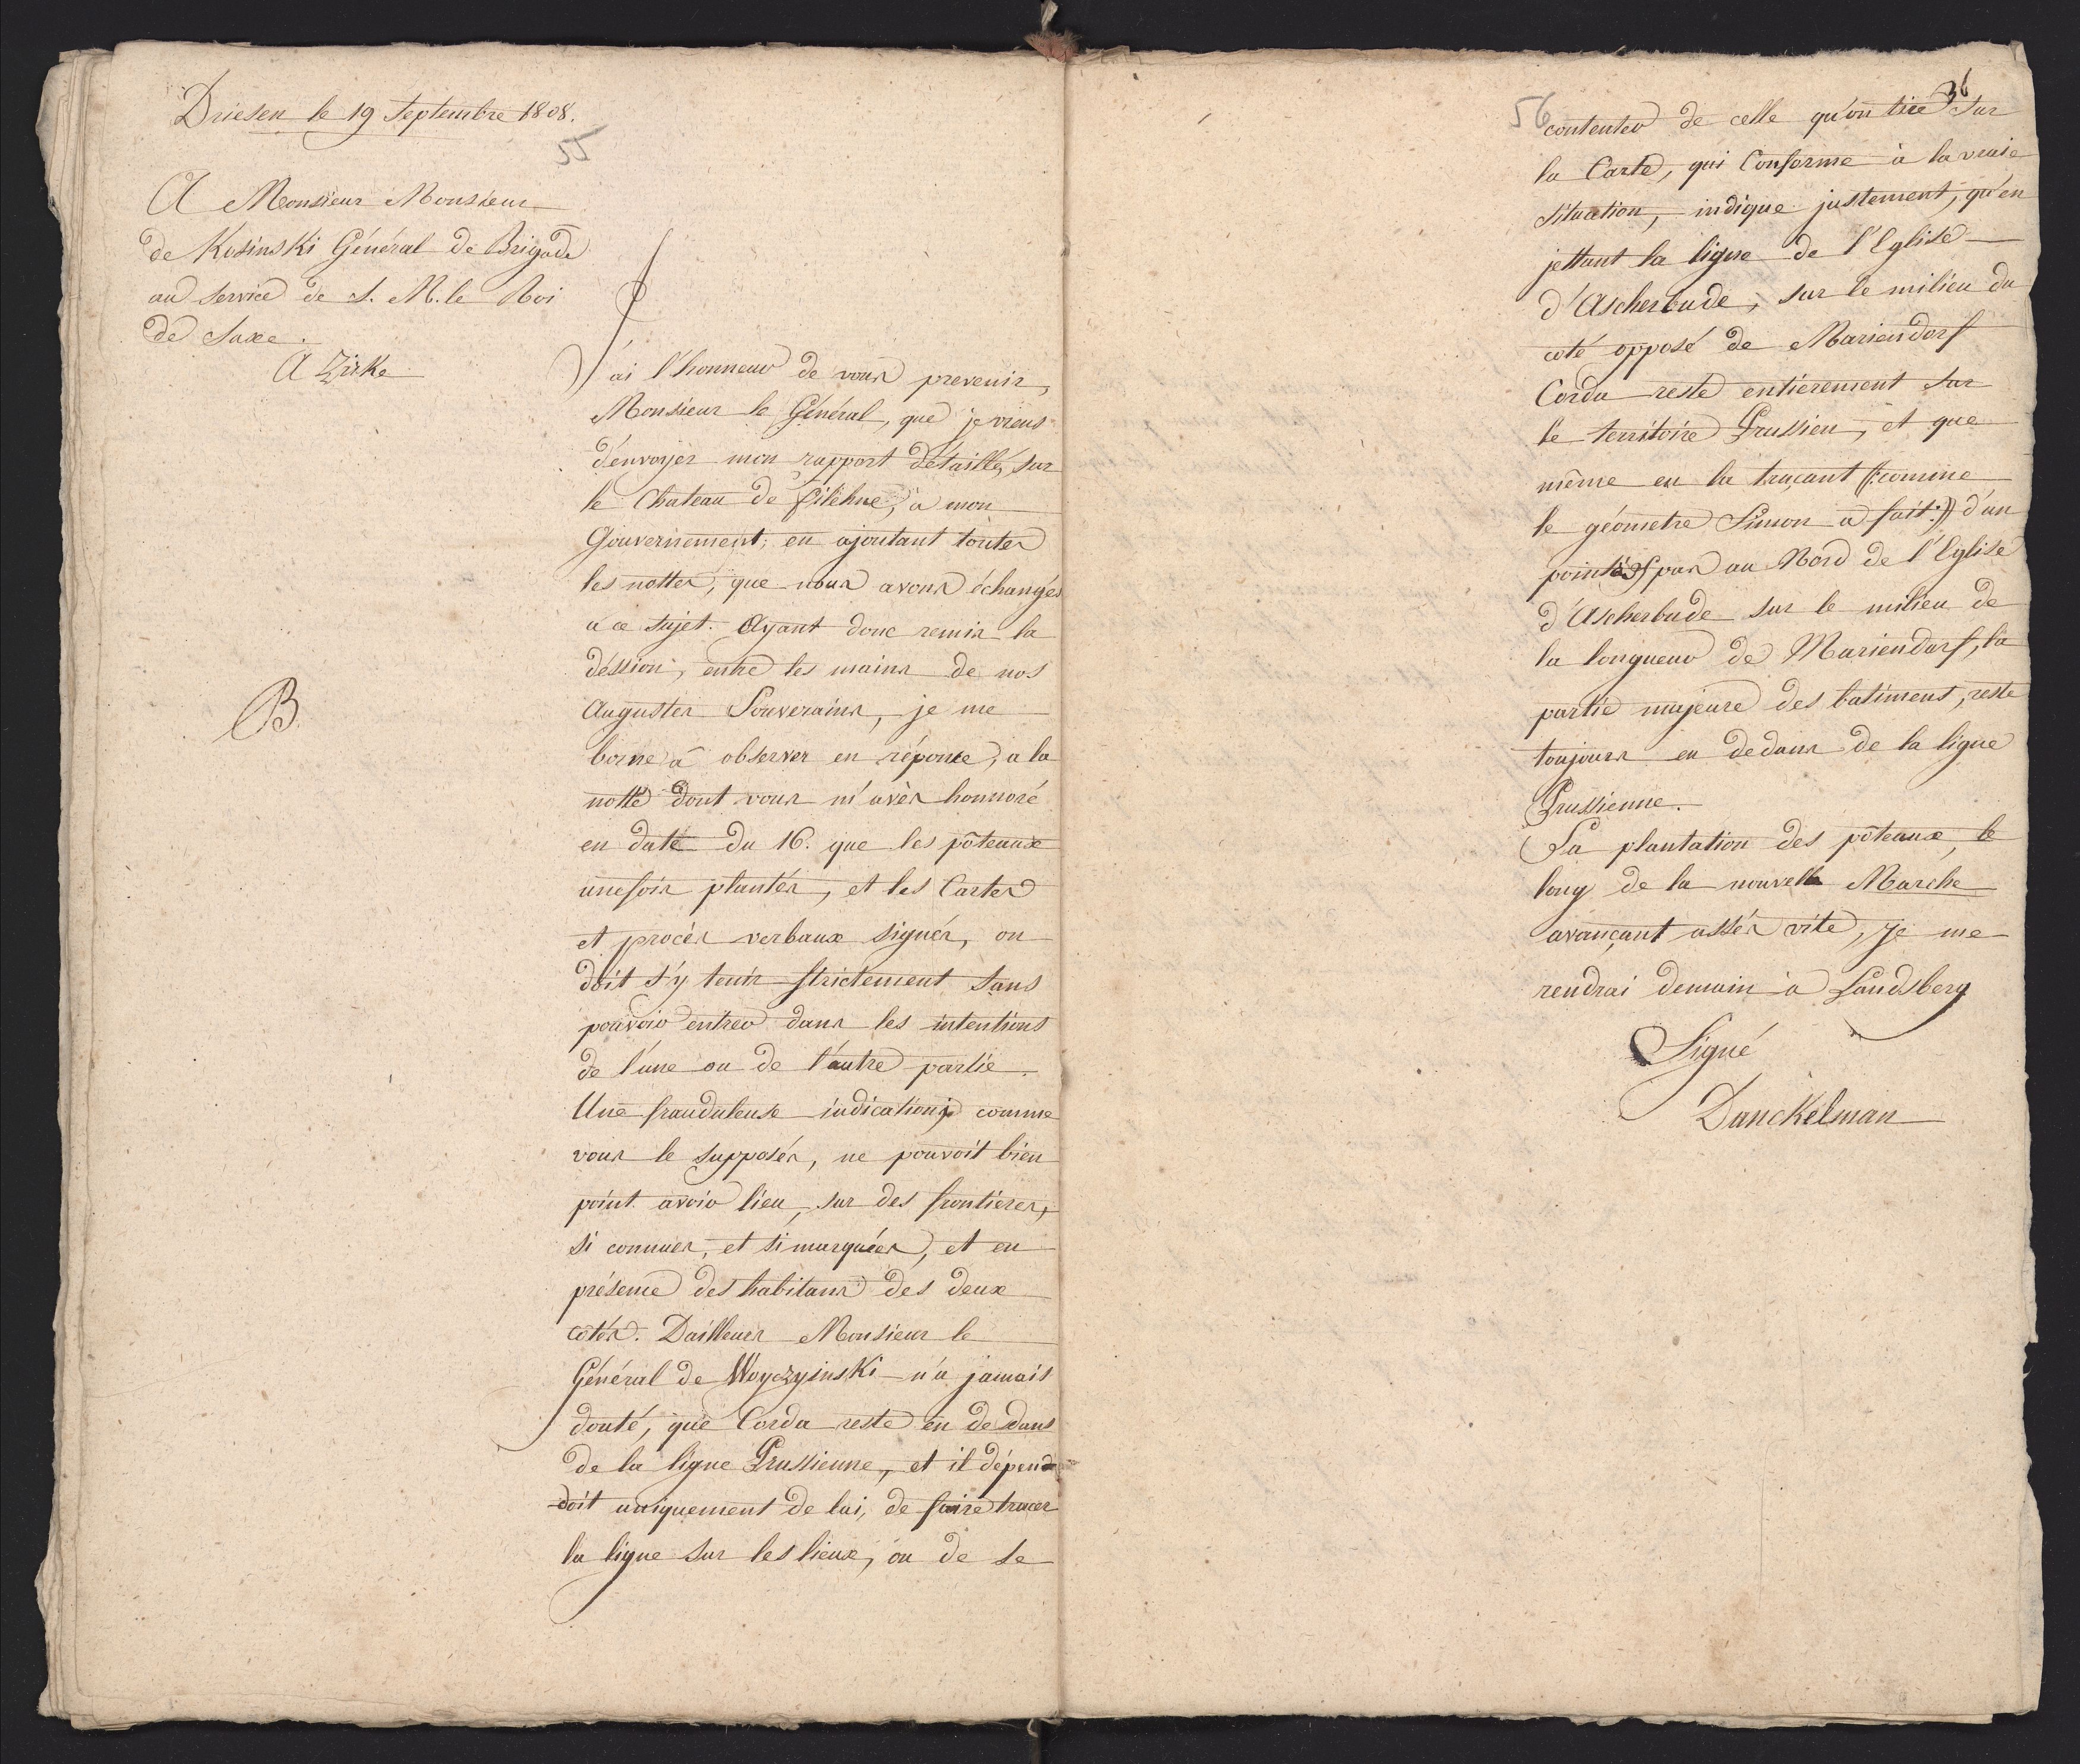 Driesen le 19 Septembre 1808.
55
A Monsieur Monsieur
de Kosinski Général de Brigade
au service de S. M. le Roi
de Saxe.
A Zirke
B.
J'ai l'honneur de vous prevenir,
Monsieur le Général, que je viens
d'envoyer mon rapport détaillé, sur
le Chateau de Filehne, a mon
Gouvernement, en ajoutant toutes
les nottes, que nous avons échangés
a ce sujet. Ayant donc remis la
déssion, entre les mains de nos
Augustes Souverains, je me
borne à observer en réponse, a la
notte dont vous m'avès honnoré
en date du 16. que les pôteaux
unefois plantés, et les Cartes
et procès verbaux signés, on
doit s'y tenir strictement sans
pouvoir entrer dans les intentions
de l'une ou de l'autre partie.
Une frauduleuse indication, comme
vous le supposés, ne pouvoit bien
point avoir lieu, sur des frontieres,
si connues, et si marquées, et en
présence des habitans des deux
côtés. Dailleurs Monsieur le
Général de Woyczyinski n'a jamais
douté, que Corda reste en dedans
de la ligne Prussienne, et il dépend
doit uniquement de lui, de faire tracer
la ligne sur les lieux, ou de se
36
56
contenter de celle qu'on tire sur
la Carte, qui Conforme à la vraie
situation, indique justement, qu'en
jettant la ligne de l'Eglise
d'Ascherbude, sur le milieu du
coté opposé de Mariendorf
Corda reste entierement sur
le territoire Prussien, et que
même en la traçant (:comme
le géometre Simon a fait:) d'un
point pas au Nord de l'Eglise
d'Ascherbude sur le milieu de
la longueur de Mariendorf, la
partie majeure des batimens, reste
toujours en dedans de la ligne
Prussienne.
La plantation des pôteaux, le
long de la nouvelle Marche
avançant assés vite, je me
rendrai demain à Landsberg
Signé
Danckelman